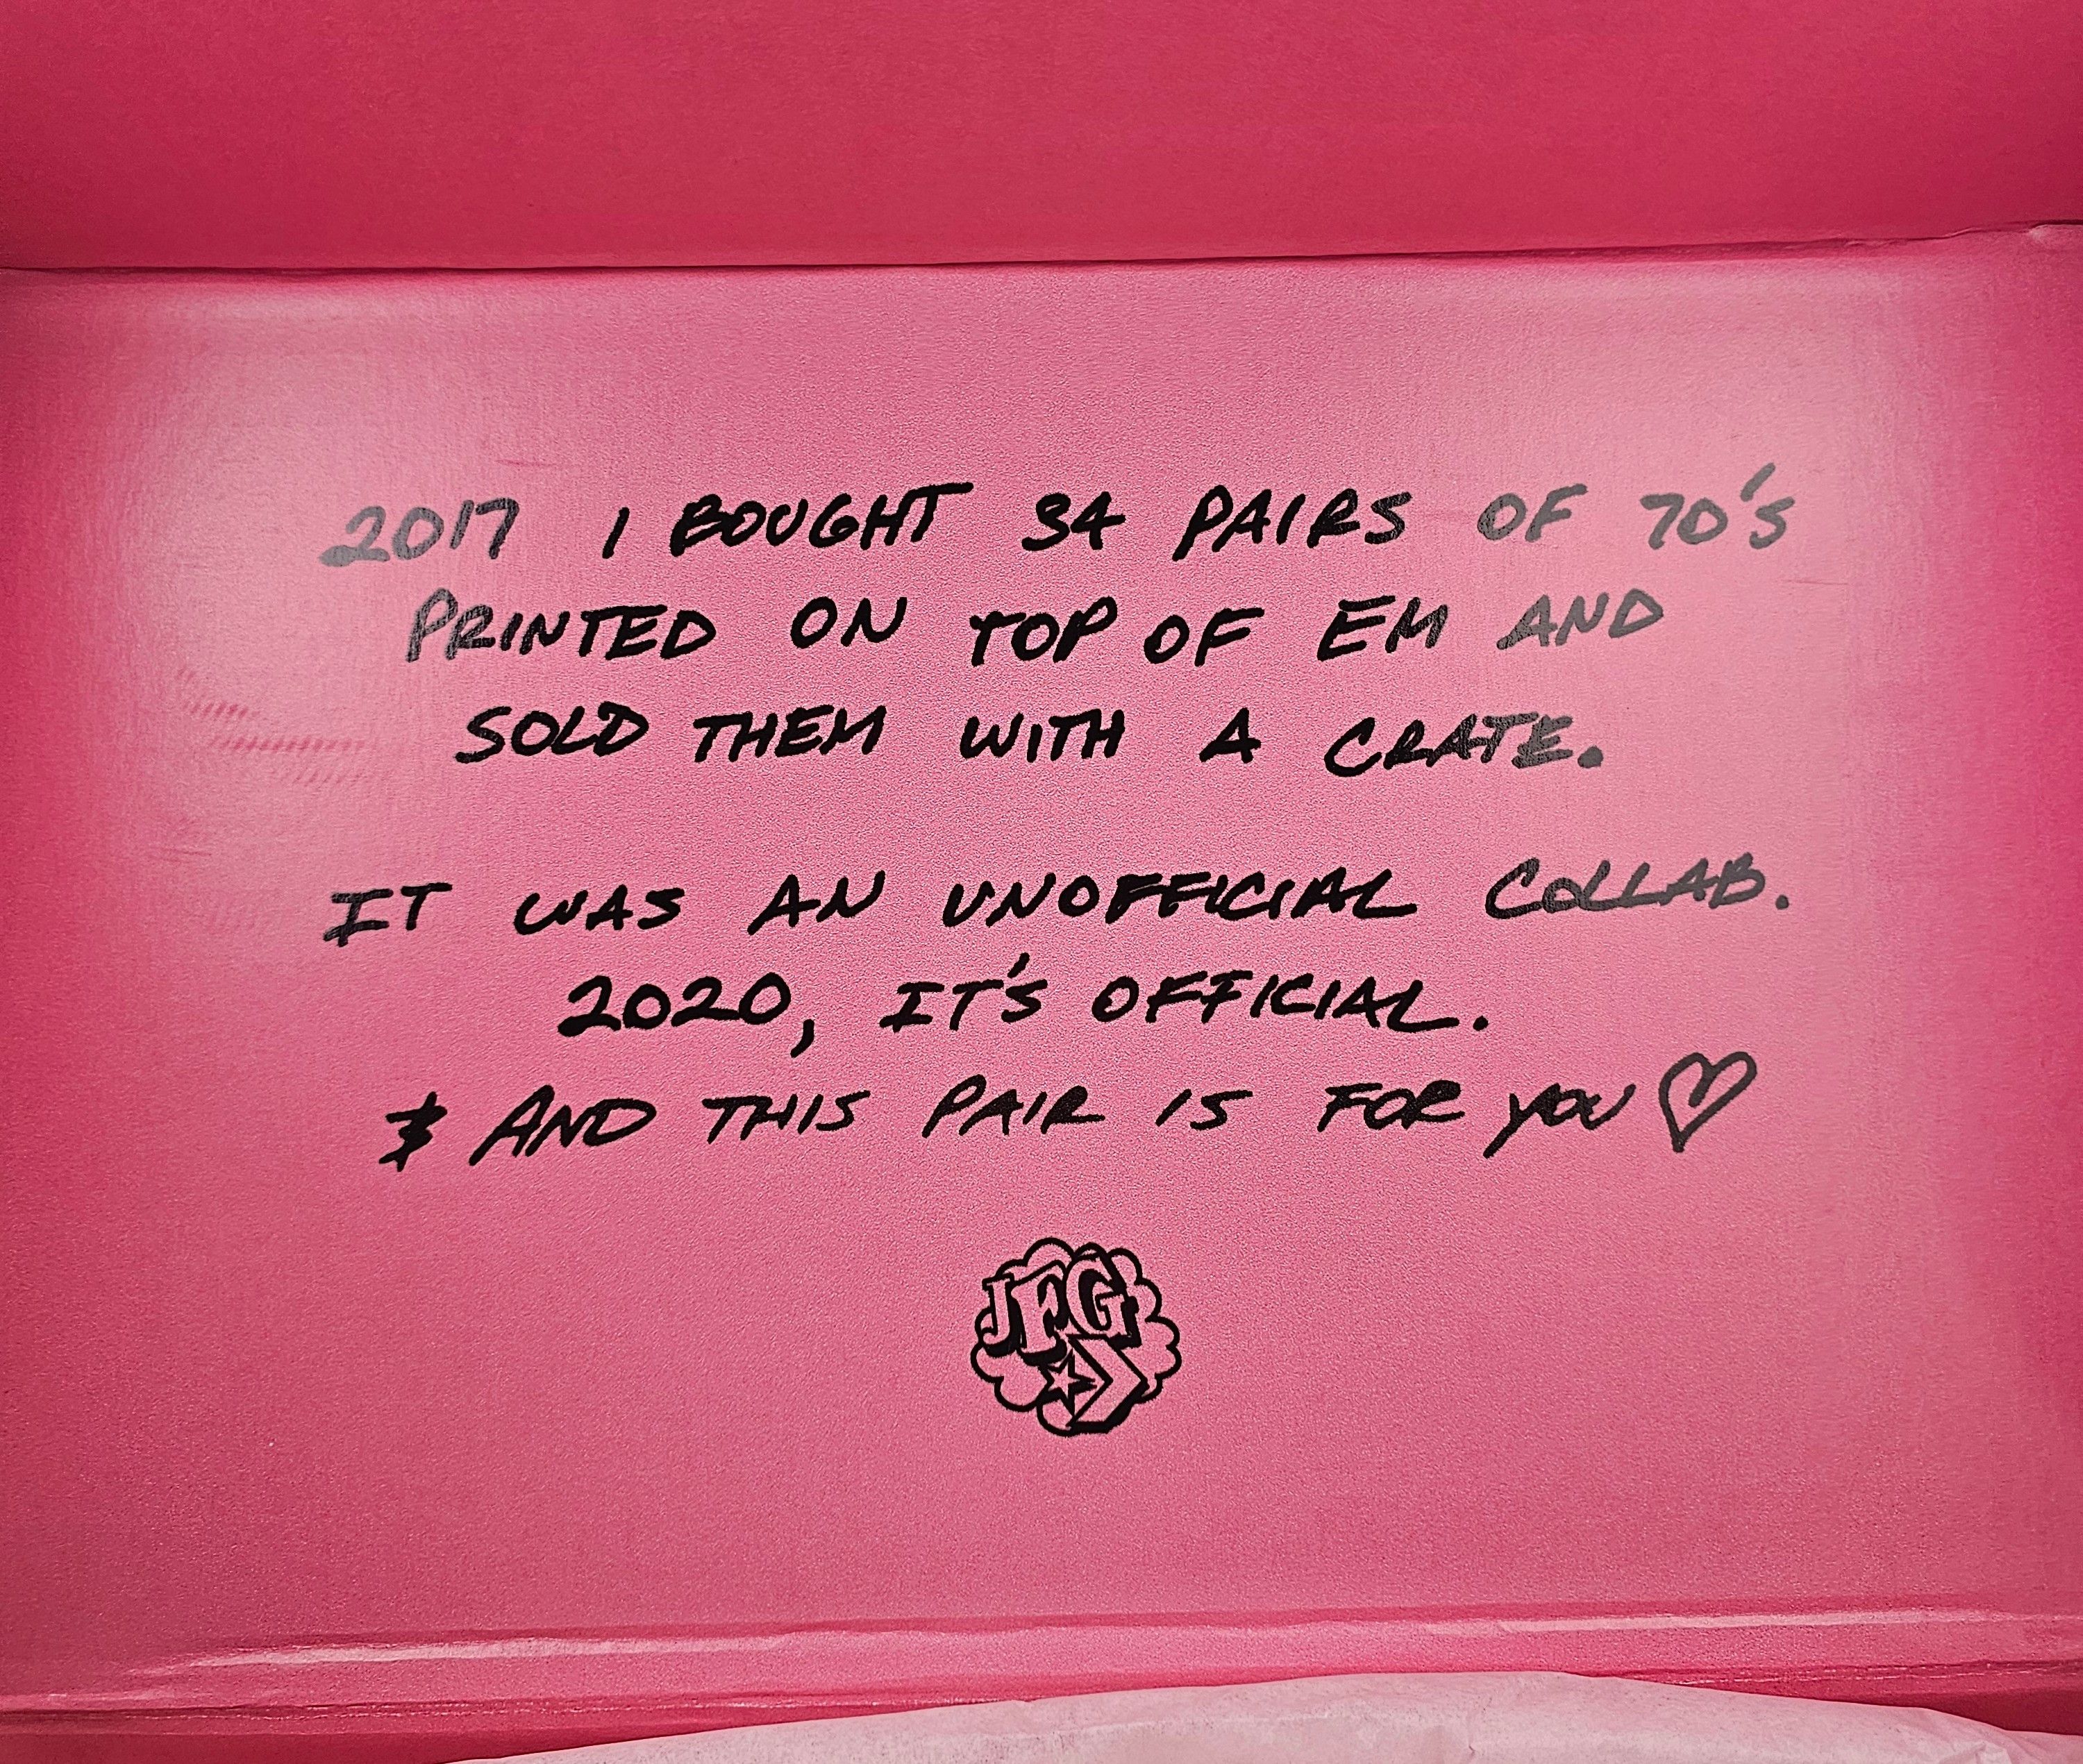 2017 I BOUGHT 34 PAIRS OF 70'S
PRINTED ON TOP OF EM AND
SOLD THEM WITH A CRATE.
IT WAS AN UNOFFICIAL COLLAB.
2020, IT'S OFFICIAL.
& AND THIS PAIR IS FOR YOU ♡
JFG